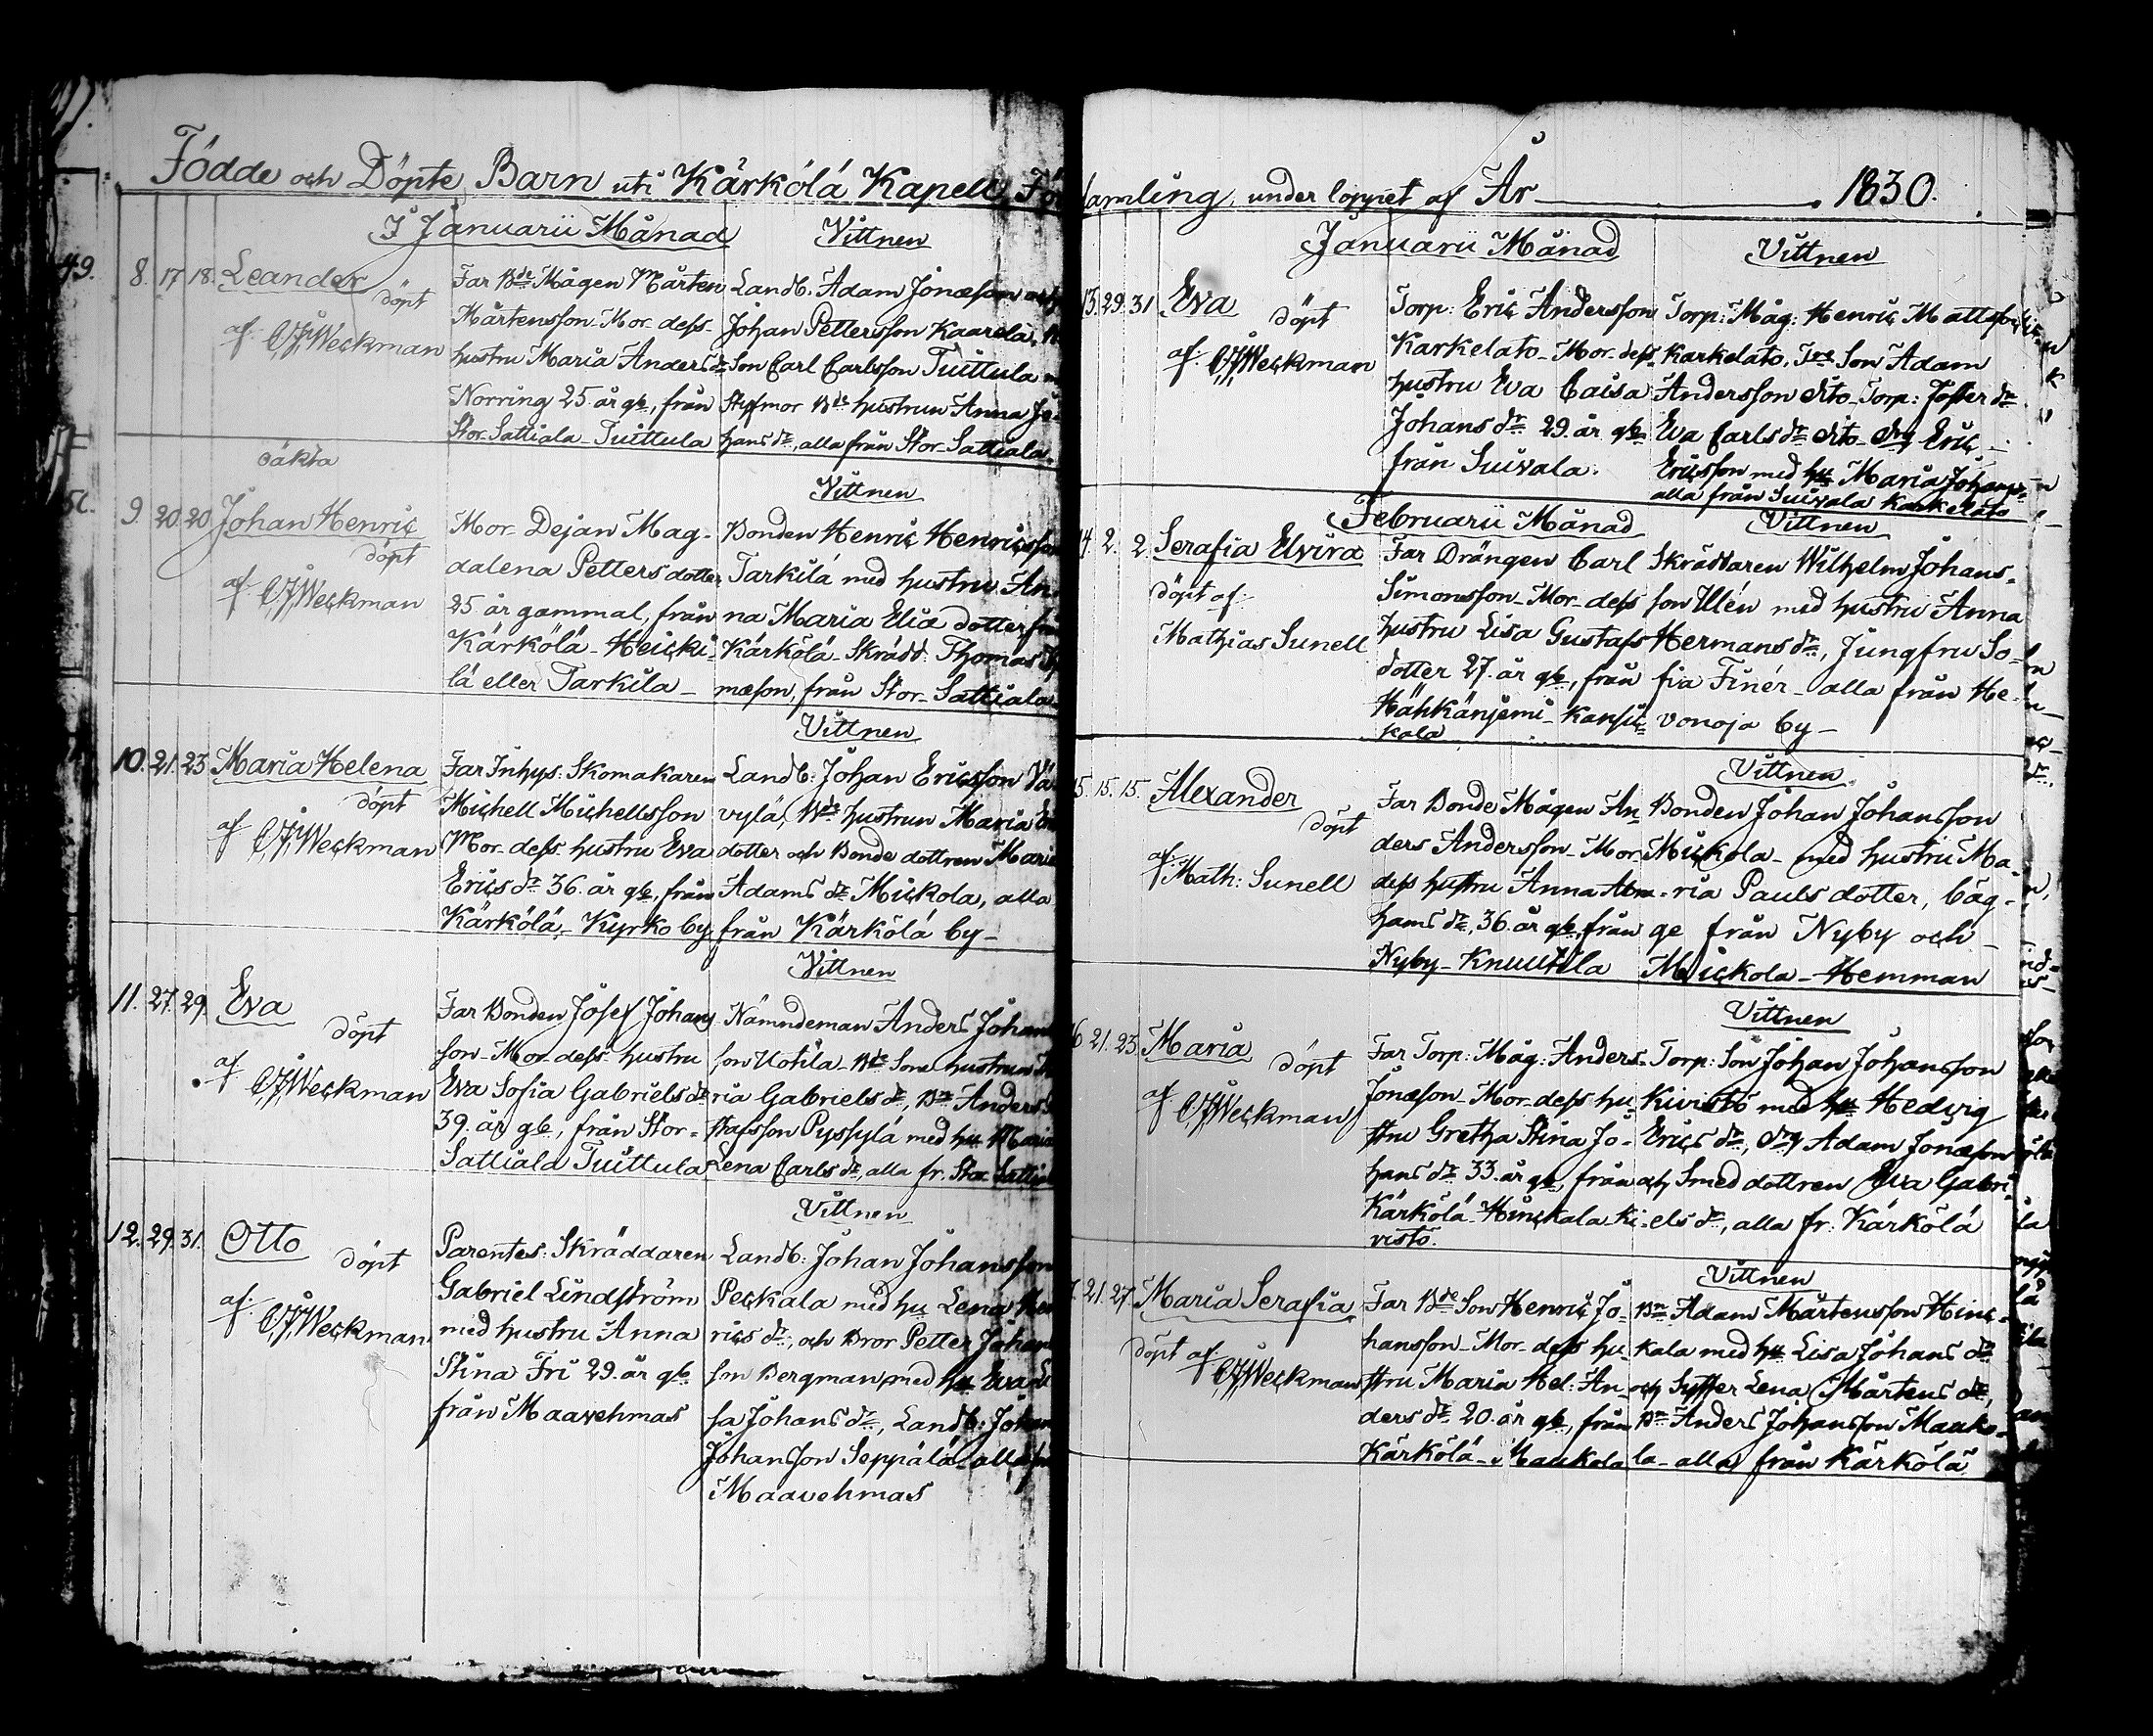 Födde och Döpte Barn uti Kärkölä Kapell För
I Januarii Månad Vittnen
49. 8. 17 18. Leander döpt
af CJWeckman
Far Bde Mågen Mårten
Mårtensson Mor dess
hustru Maria Anders dr
Norring 25 år gb, från
Stor Sattiala Tuittula
Landb. Adam Jonæson och
Johan Pettersson Kaarela,
Son Carl Carlsson Tuittula
Styfmor Bde hustrun Anna Jo-
hans dr, alla från Stor Sattiala
oäkta
9. 20. 20. Johan Henric
döpt
af CJWeckman
Mor Dejan Mag-
dalena Petters dotter
25 år gammal, från
Kärkölä Heicki-
lä eller Tarkila
Vittnen
Bonden Henric Henricsson
Tarkilä med hustru An
na Maria Elia dotter från
Kärkölä Skrädd. Thomas
mæson, från Stor Sattiala
10. 21. 23 Maria Helena
döpt
af CJWeckman
Far Inhys: Skomakaren
Michell Michellsson
Mor dess hustru Eva
Erics dr 36 år gb, från
Kärkölä, Kyrko by
Vittnen
Landb: Johan Ericsson Vä
vylä, Bde hustrun Maria
dotter och Bonde dottren Maria
Adams dr Mickola, alla
från Kärkölä by
11. 27. 29. Eva
döpt
af CJWeckman
Far Bonden Josef Johans
son Mor dess hustru
Eva Sofia Gabriels dr
39 år gb, från Stor-
Sattiala Tuittula
Vittnen
Nämndeman Anders Johans
son Uotila Bde Sone hustrun
ria Gabriels dr, Bn Anders
stafsson Pyssylä med hu Maria
Lena Carls dr, alla fr. Stor Sattial
12. 29. 31. Otto
döpt
af CJWeckman
Parentes: Skräddaren
Gabriel Lindström
med hustru Anna
Stina Fri 29 år gb
från Maavehmas
Vittnen
Landb: Johan Johansson
Peckala med hu Lena Hen
rics dr, och Bror Petter Johan
son Bergman med hu Eva
sa Johans dr, Landb: Johan
Johansson Seppälä alla
Maavehmas
samling, under loppet af År 1830.
Januarii Månad Vittnen
13. 29. 31 Eva
döpt
af CJWeckman
Torp: Eric Andersson
Karkelato Mor dess
hustru Eva Caisa
Johans dr 29 år gb
från Suivala.
Torp: Måg: Henric Mattsson
Karkelato, Tre Son Adam
Andersson dito Torp: Foster dr
Eva Carls dr dito drg Eric
Ericsson med hu Maria Johans
alla från Suivala Karkelato
Februarii Månad Vittnen
14. 2. 2. Serafia Elvira
döpt af
Mathias Sunell
Far Drängen Carl
Simonsson Mor dess
hustru Lisa Gustafs
dotter 27 år gb, från
Hähkänjemi Kansi
kala
Skräddaren Wilhelm Johans-
son Ulén med hustru Anna
Hermans dr, Jungfru So-
fia Finér alla från He-
vonoja by
15. 15. 15. Alexander
döpt
af Math: Sunell
Far Bonde Mågen An
ders Andersson Mor
dess hustru Anna Abra-
hams dr, 36 år gb, från
Nyby Knuutila
Vittnen
Bonden Johan Johansson
Mickola med hustru Ma-
ria Pauls dotter, bäg-
ge från Nyby och
Mickola Hemman
16 21. 23. Maria
döpt
af CJWeckman
Far Torp: Måg: Anders
Jonæson Mor dess hu
stru Gretha Stina Jo-
hans dr 33 år gb, från
Kärkölä Hinckala Ki-
vistö.
Vittnen
Torp: Son Johan Johansson
Kivistö med hu Hedvig
Erics dr, drg Adam Jonæson
och Smed dottren Eva Gabri
els dr, alla fr. Kärkölä
17. 21. 27. Maria Serafia
döpt af
CJWeckman
Far Bde Son Henric Jo-
hansson Mor dess hu
stru Maria Hel: An-
ders dr 20 år gb, från
Kärkölä Maukola
Vittnen
Bn Adam Mårtensson Hinc-
kala med hu Lisa Johans dr
och Syster Lena Mårtens dr,
Bn Anders Johansson Mauko-
la alla från Kärkölä